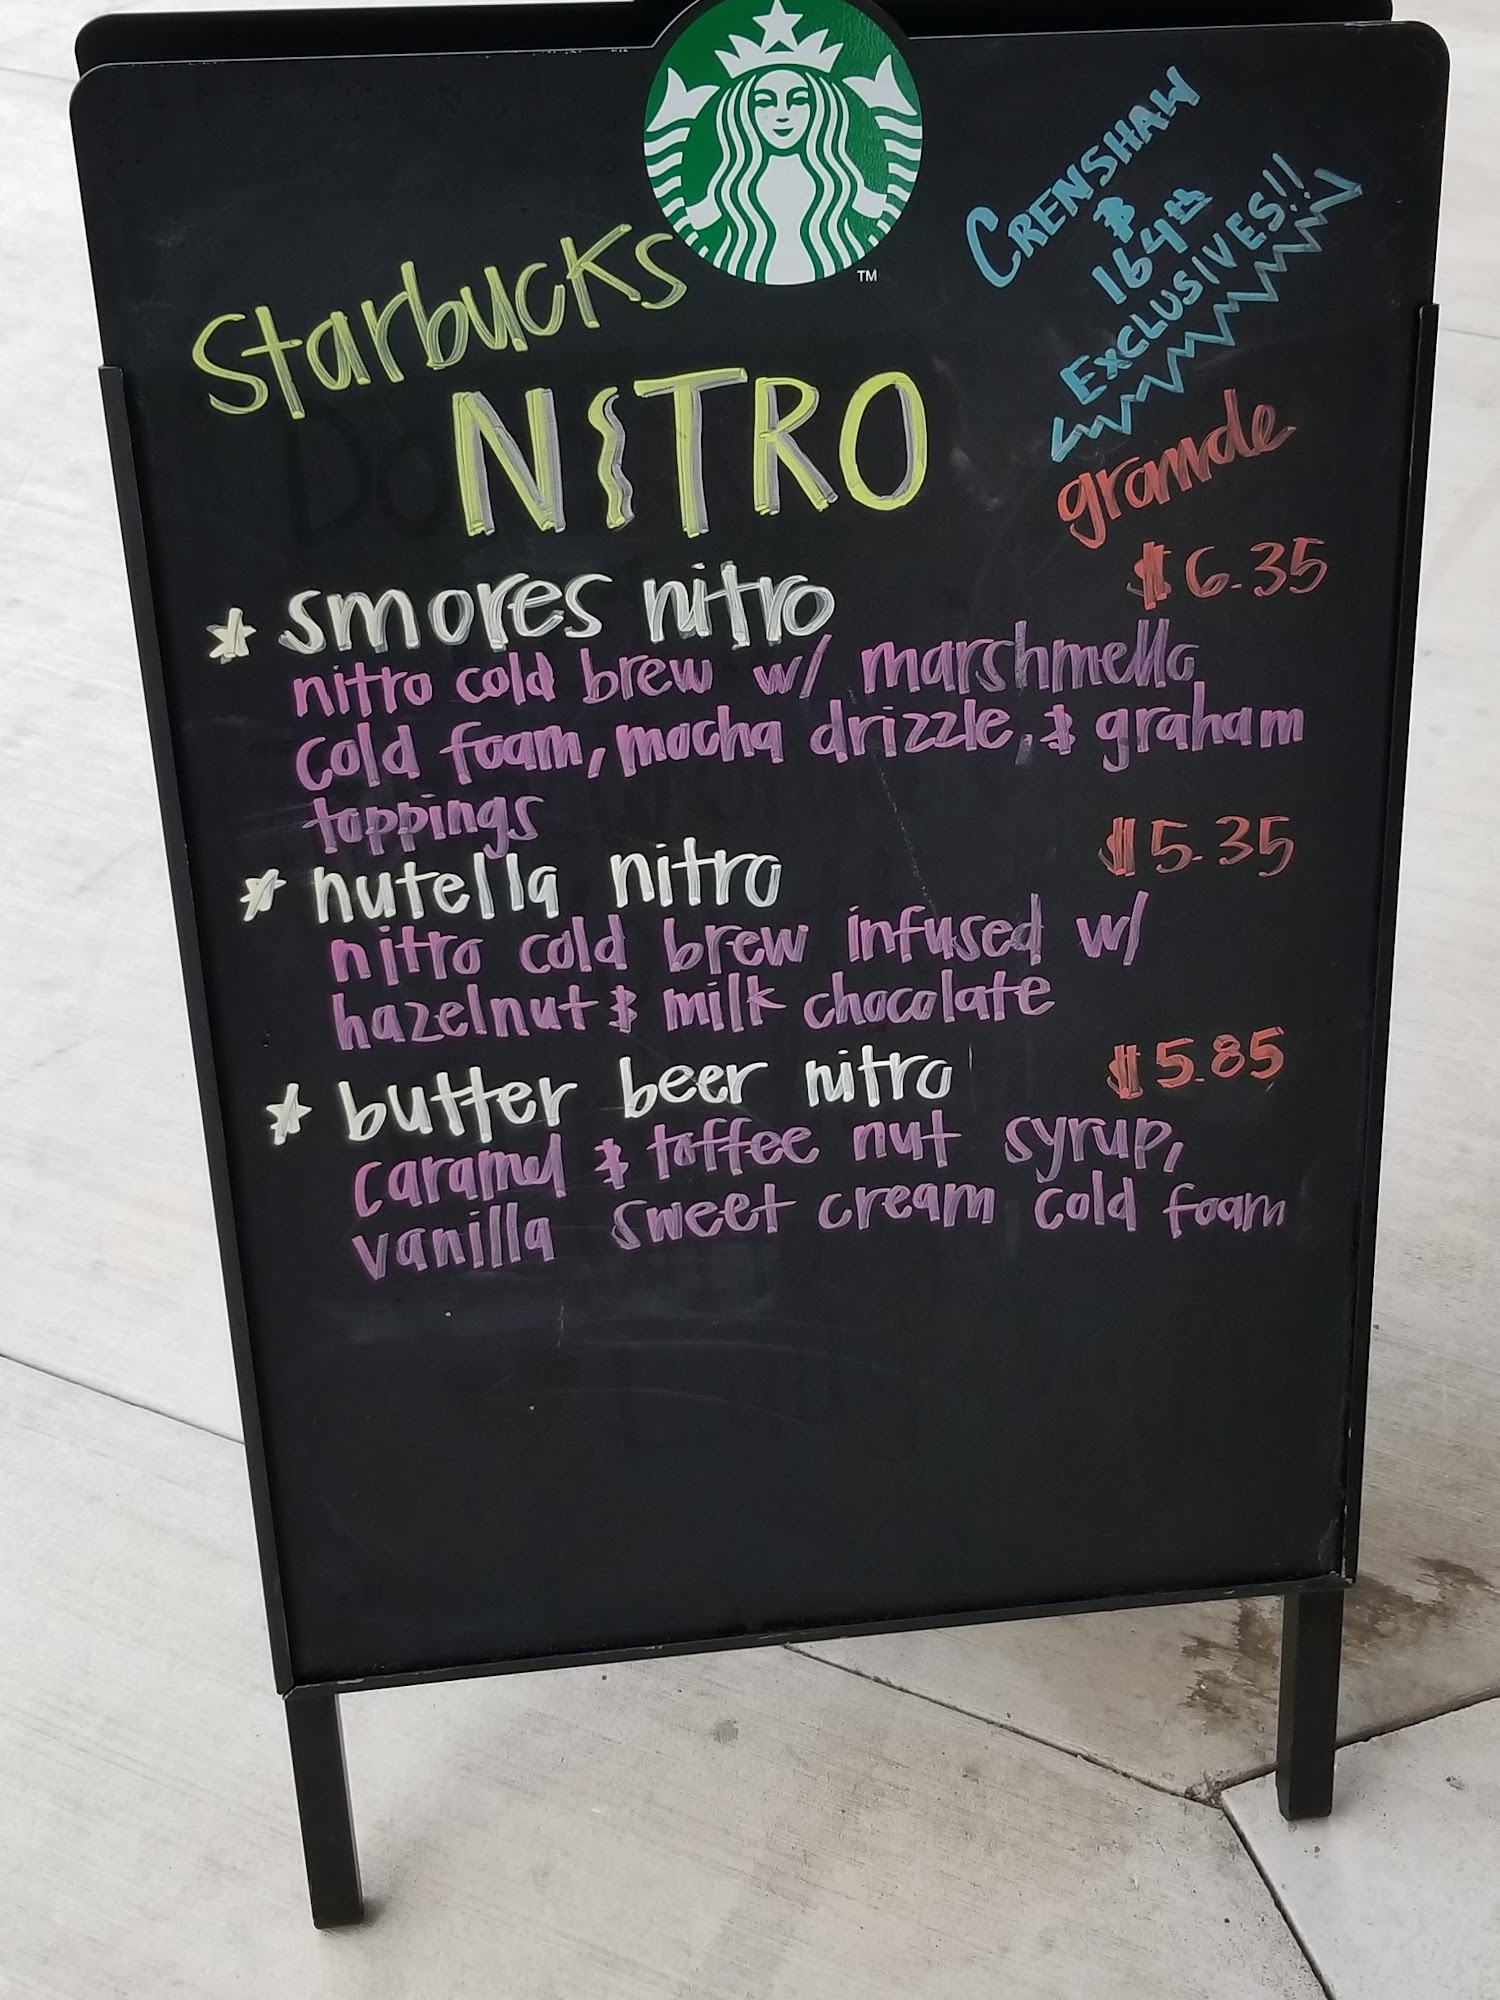 CRENSHAW
&
164th
EXCLUSIVES!!
TM
Starbucks
NITRO
grande
* smores nitro $6.35
nitro cold brew w/ marshmello
cold foam, mocha drizzle, & graham
toppings
* nutella nitro $5.35
nitro cold brew infused w/
hazelnut & milk chocolate
* butter beer nitro $5.85
caramel & toffee nut syrup,
vanilla sweet cream cold foam